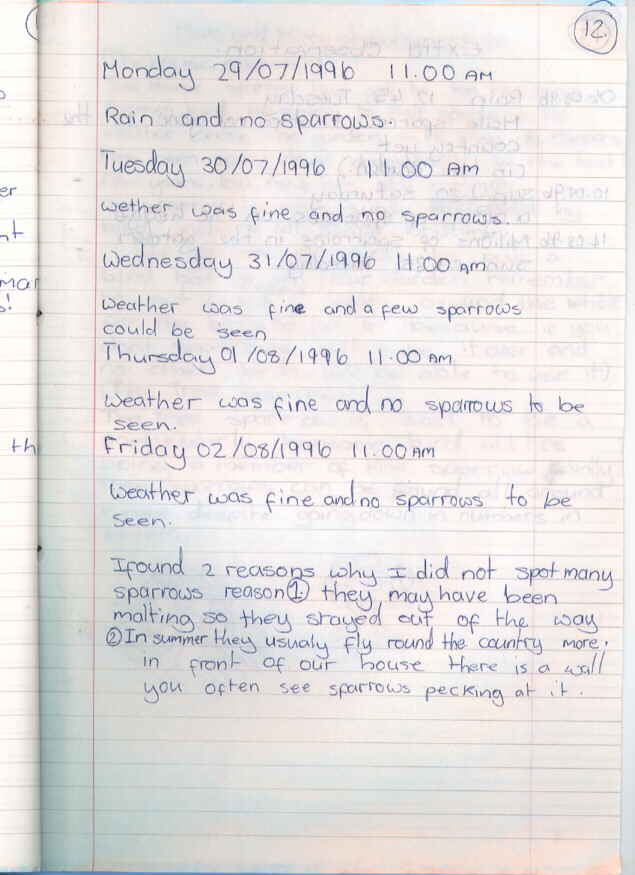 12.
Monday 29/07/1996 11.00 AM
Rain and no sparrows.
Tuesday 30/07/1996 11.00 AM
wether was fine and no sparrows.
Wednesday 31/07/1996 11.00 AM
weather was fine and a few sparrows
could be seen
Thursday 01/08/1996 11.00 AM
Weather was fine and no sparrows to be
seen.
Friday 02/08/1996 11.00 AM
Weather was fine and no sparrows to be
seen.
I found 2 reasons why I did not spot many
sparrows reason ①. they may have been
malting so they stayed out of the way
② In summer they usualy fly round the country more.
in front of our house there is a wall
you often see sparrows pecking at it.